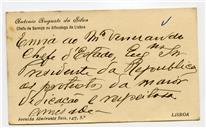 Antonio Augusto da Silva
Chefe de Serviço na Alfandega de Lisboa
Envia ao Mº Venerando
Chefe d'Estado Exmo Snr
Presidente da Republica
os protestos da maior
dedicação e respeitosa
amizade
Avenida Almirante Reis, 147, 3.º
LISBOA